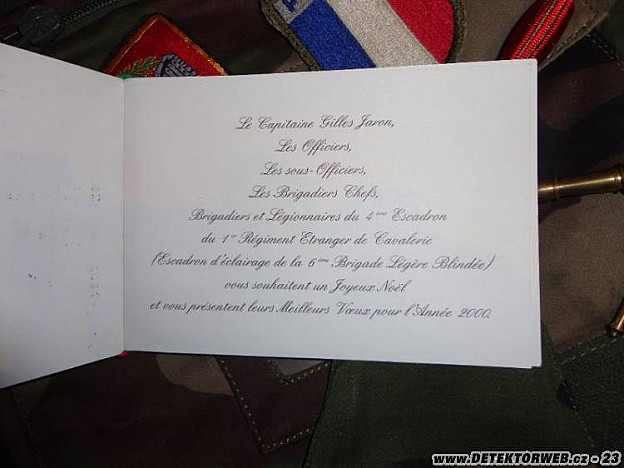 Le Capitaine Gilles Jaron,
Les Officiers,
Les sous-Officiers,
Les Brigadiers Chefs,
Brigadiers et Légionnaires du 4ème Escadron
du 1er Régiment Etranger de Cavalerie
(Escadron d'éclairage de la 6ème Brigade Légère Blindée)
vous souhaitent un Joyeux Noël
et vous présentent leurs Meilleurs Vœux pour l'Année 2000.
www.DETEKTORWEB.cz - 23